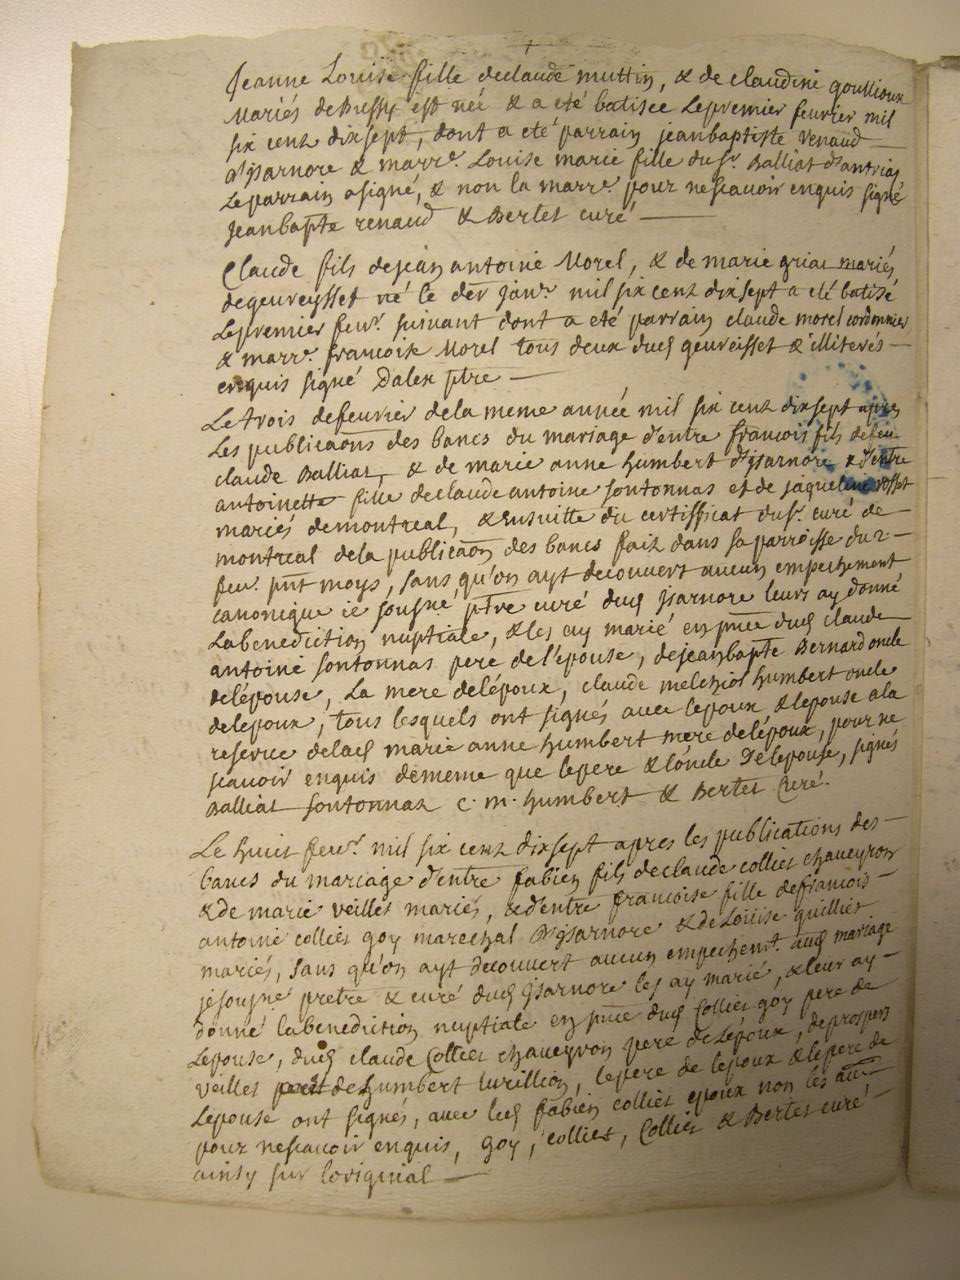 Jeanne Louise fille declaude muttin, & de claudine goullioux
Mariés deBussy est née & a eté batisée Lepremier feurier mil
six cenz dixsept, dont a eté parrain jeanbaptiste renaud
d'Isarnore & marre. Louise marie fille du sr. Balliat d'antriax
Leparrain asigné, & non la marre. pour nescavoir enquis signé
Jeanbapte renaud & Bertet curé
Claude fils dejean antoine Morel, & de marie mariés
degeureysset né le der janr. mil six cenz dixsept a eté batisé
Lepremier feur. suivant dont a eté parrain claude morel cordonnier
& marre. francoise Morel tous deux dud geureisset & illiterés
enquis signé Dalex ptre
Le trois defeurier dela meme année mil six cenz dixsept apres
Les publicaõns des bancs du mariage d'entre francois fils defeu
claude Balliat, & de marie anne humbert d'Isarnore & d'entre
antoinette fille declaude antoine sontonnas et de jaqueline rosset
mariés demontreal, & ensuitte du certifficat du sr. curé de
montreal dela publicaõn des bancs faiz dans sa parroisse du 2
feur. pñt moys, sans qu'on ayt decouvert aucun empechement
canonique ie sousné ptre curé dud Isarnore leurs ay donné
Labenediction nuptiale, & les ay marié en pñce dud claude
antoine sontonnas pere de l'epouse, dejeanbapte Bernard oncle
delépouse, La mere delépoux, claude melchior humbert oncle
delepoux, tous lesquels ont signés avec lepoux & lepouse ala
reserve delad marie anne humbert mere delépoux, pour ne
scavoir enquis dememe que lepere & l'oncle Delepouse, signés
Balliat sontonnax c. m. humbert & Bertet Curé.
Le huit feur. mil six cenz dixsept apres les publications des
bancs du mariage d'entre fabien fils declaude collier chaveyron
& de marie veillet mariés, & d'entre francoise fille defrancois
antoine collier goy marechal d'Isarnore & de Louise quillier
mariés, sans qu'on ayt decouvert aucun empechemt. aud mariage
je sousne pretre & curé dud Isarnore les ay marié, & leur ay
donné labenediction nuptiale en pñce dud Collier goy pere de
Lepouse, dud claude Collier chaveyron pere deLepoux, de prosper
veillet de humbert lurillion, lepere de lepoux & lepere de
Lepouse ont signés, avec led fabien collier epoux non les au
pour nescavoir enquis, goy, collier, Collier & Bertet curé
ainsy sur loriginal